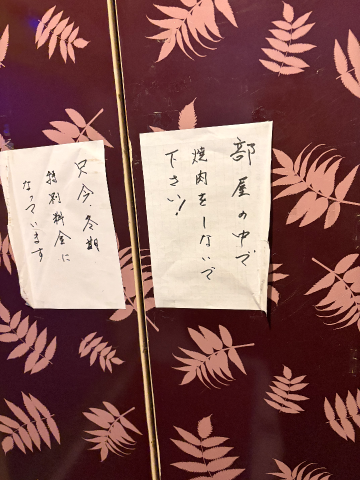 部屋の中で
焼肉をしないで
下さい!
只今、冬期
特別料金に
なっています